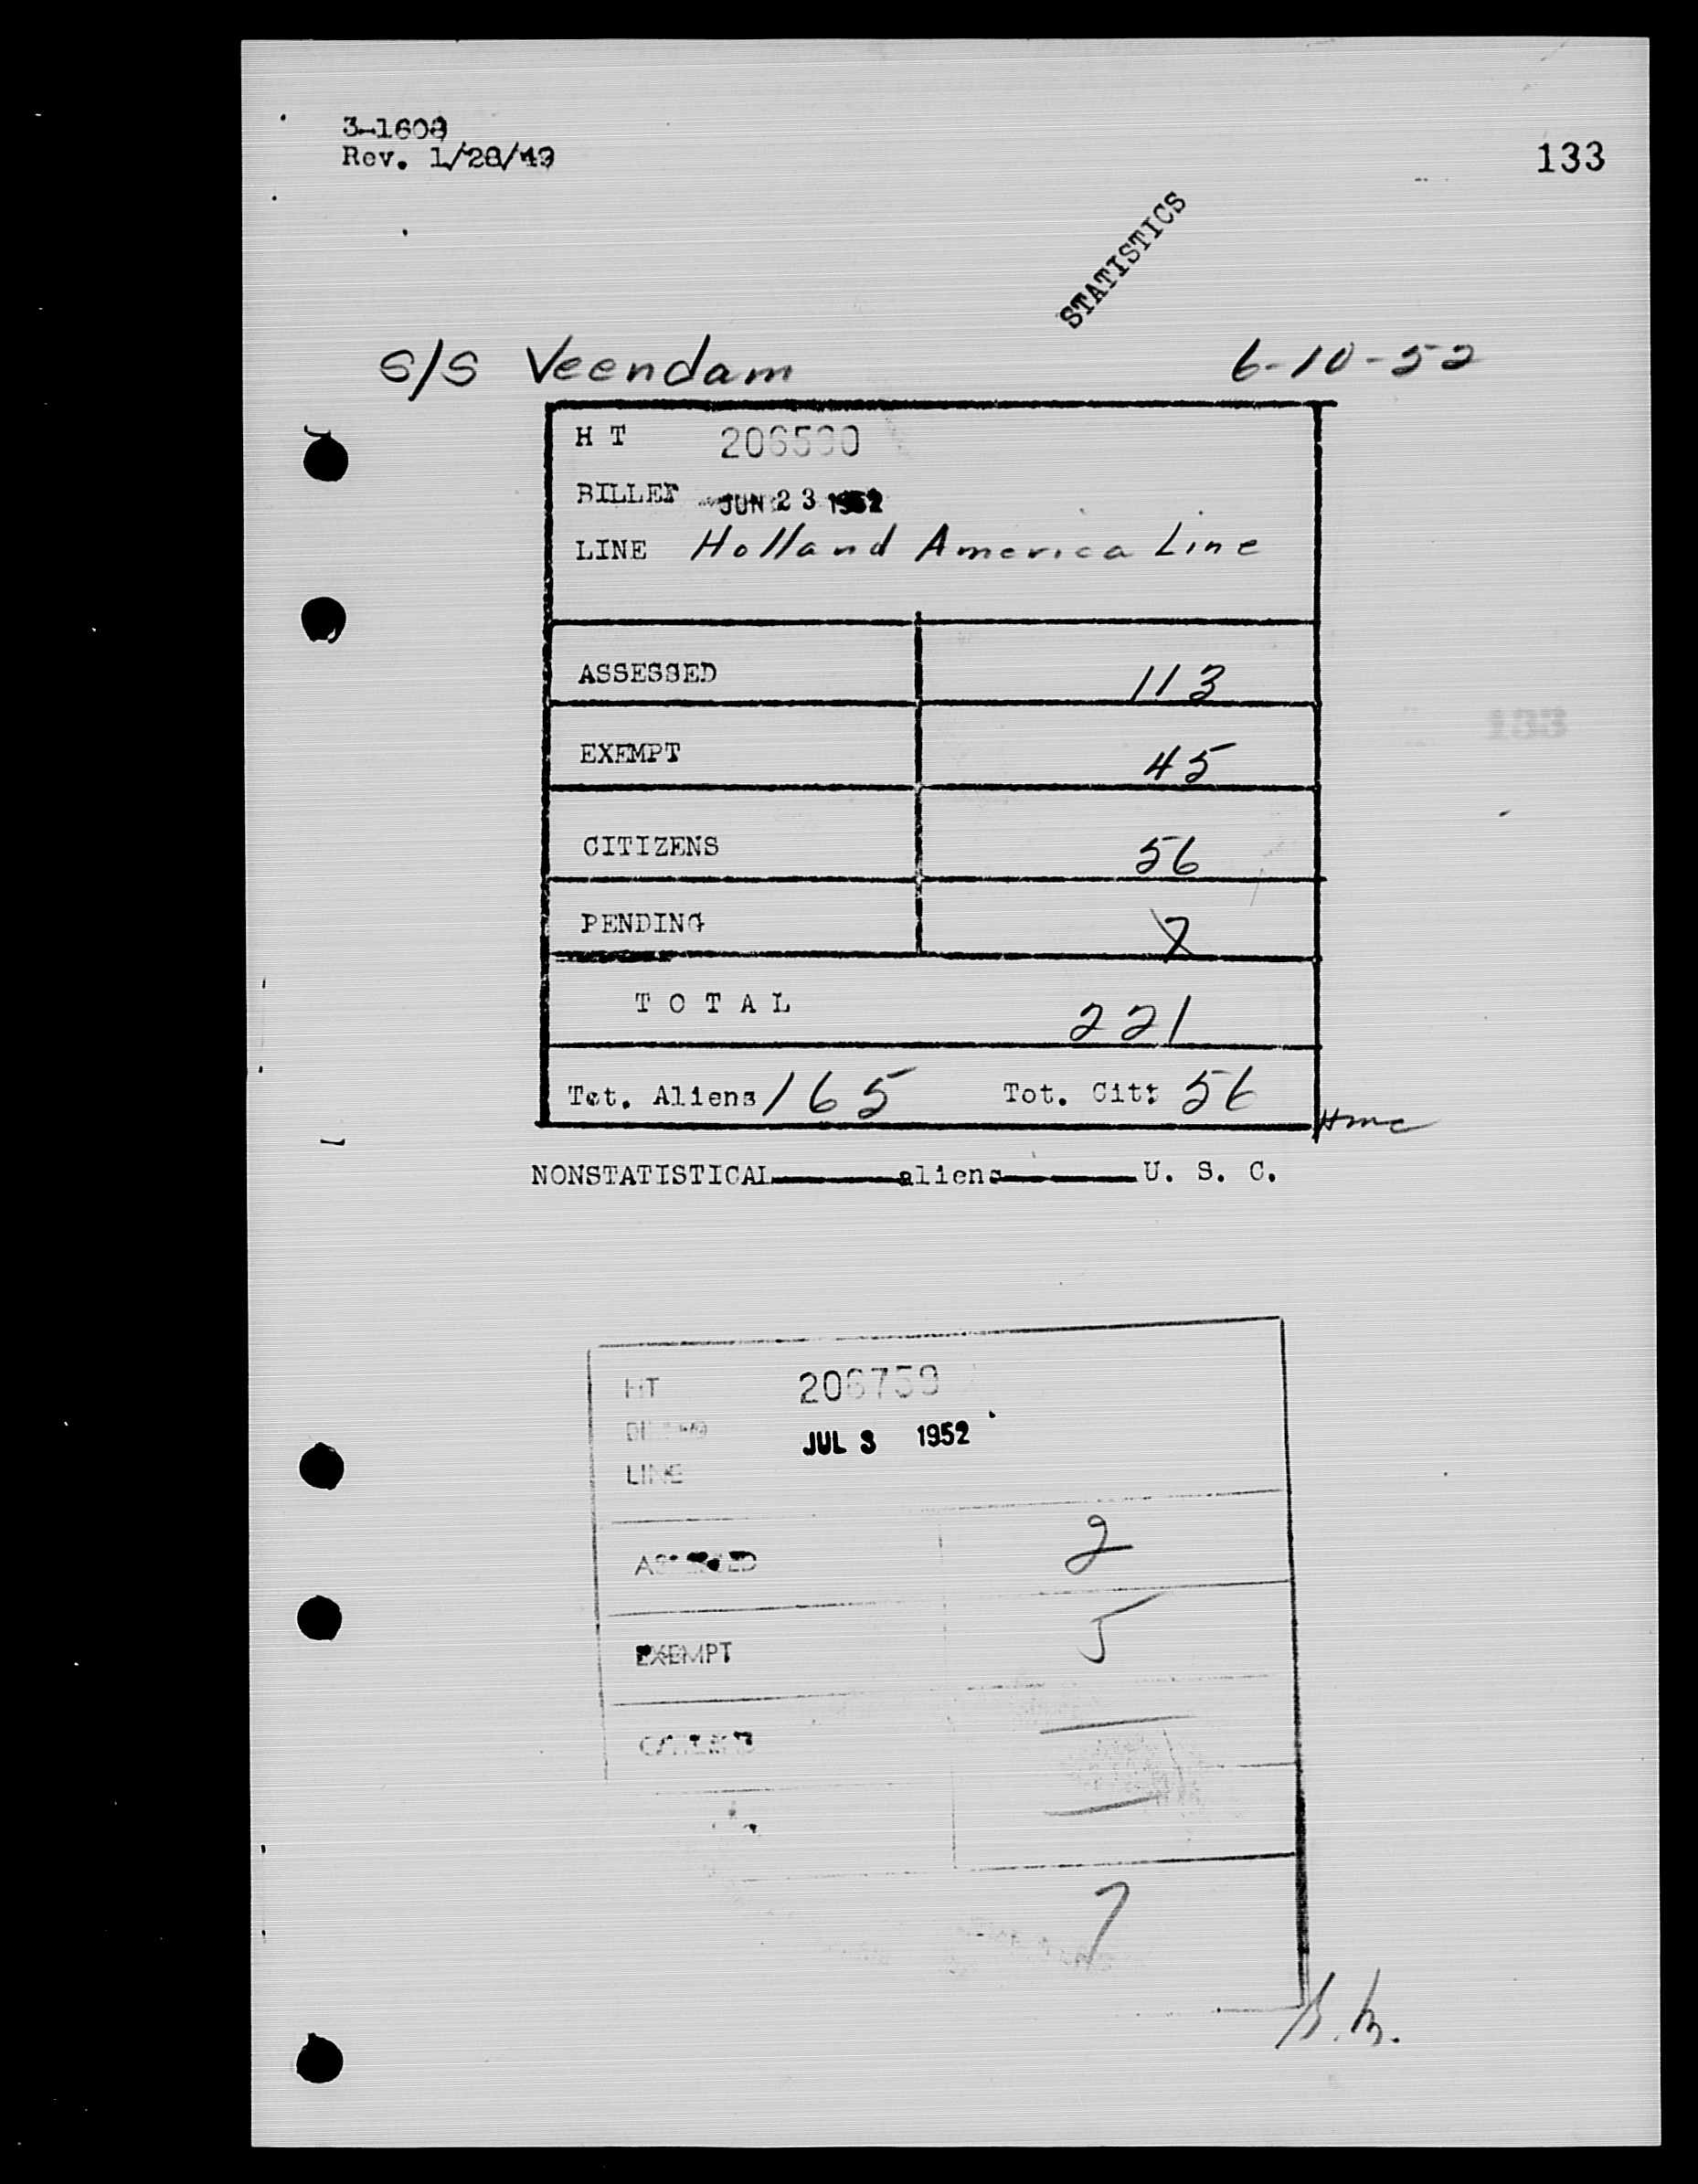 3-1608
Rev. 1/28/49
133
STATISTICS
S/S Veendam 6-10-52
H T 206590
BILLED JUN 23 1952
LINE Holland America Line
ASSESSED 113
EXEMPT 45
CITIZENS 56
PENDING 7
T O T A L 221
Tot. Aliens 165 Tot. Cit: 56
Hmc
NONSTATISTICAL aliens U. S. C.
133
HT 206759
JUL 3 1952
LINE
ASSESSED 2
EXEMPT 5
CITIZENS —
—
7